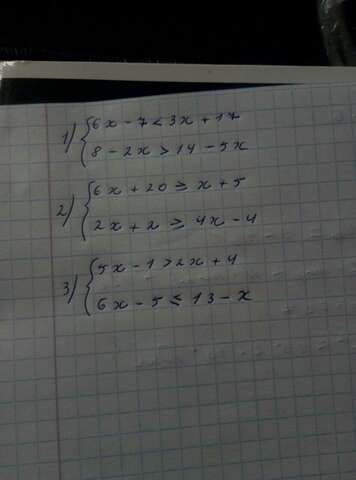 1) { 6x - 7 < 3x + 17
8 - 2x > 14 - 5x
2) { 6x + 20 ≥ x + 5
2x + 2 ≥ 4x - 4
3) { 5x - 1 > 2x + 4
6x - 5 ≤ 13 - x